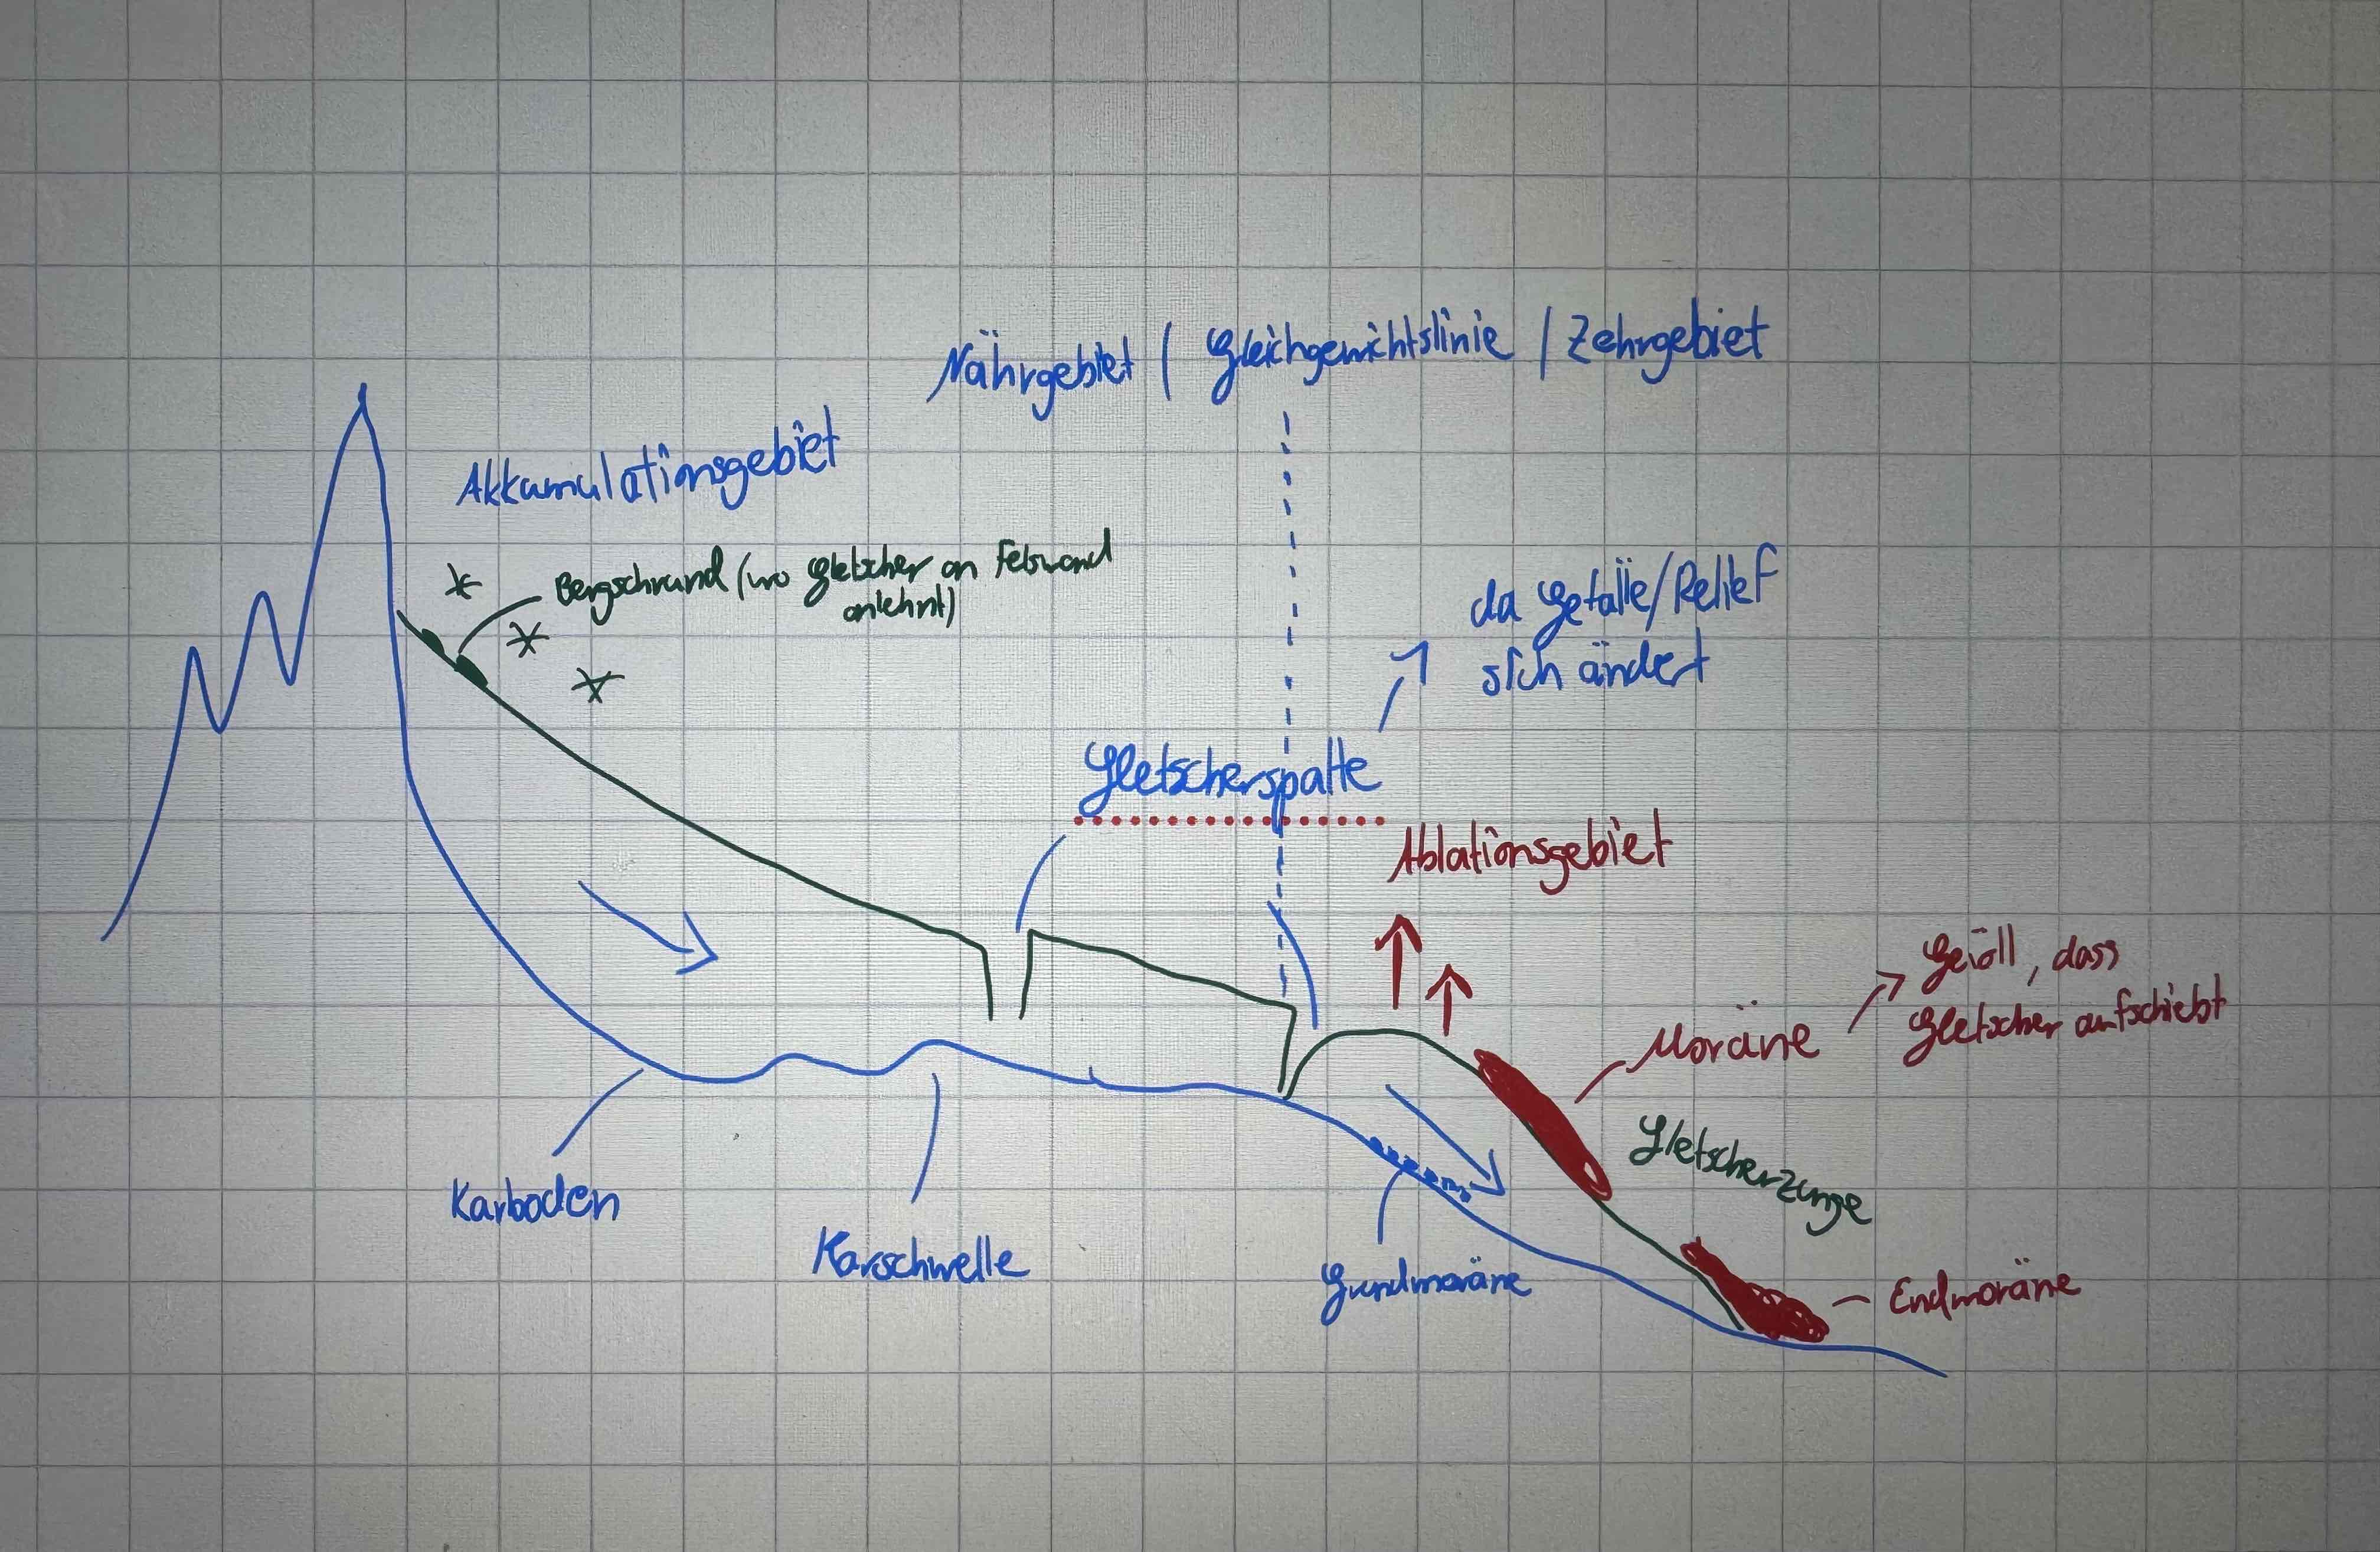 Nährgebiet | Gleichgewichtslinie | Zehrgebiet
Akkumulationsgebiet
Bergschrund (wo Gletscher an Felswand
anlehnt)
da Gefälle/Relief
sich ändert
Gletscherspalte
Ablationsgebiet
Geröll, dass
Gletscher aufschiebt
Moräne
Gletscherzunge
Karboden
Karschwelle
Grundmoräne
Endmoräne